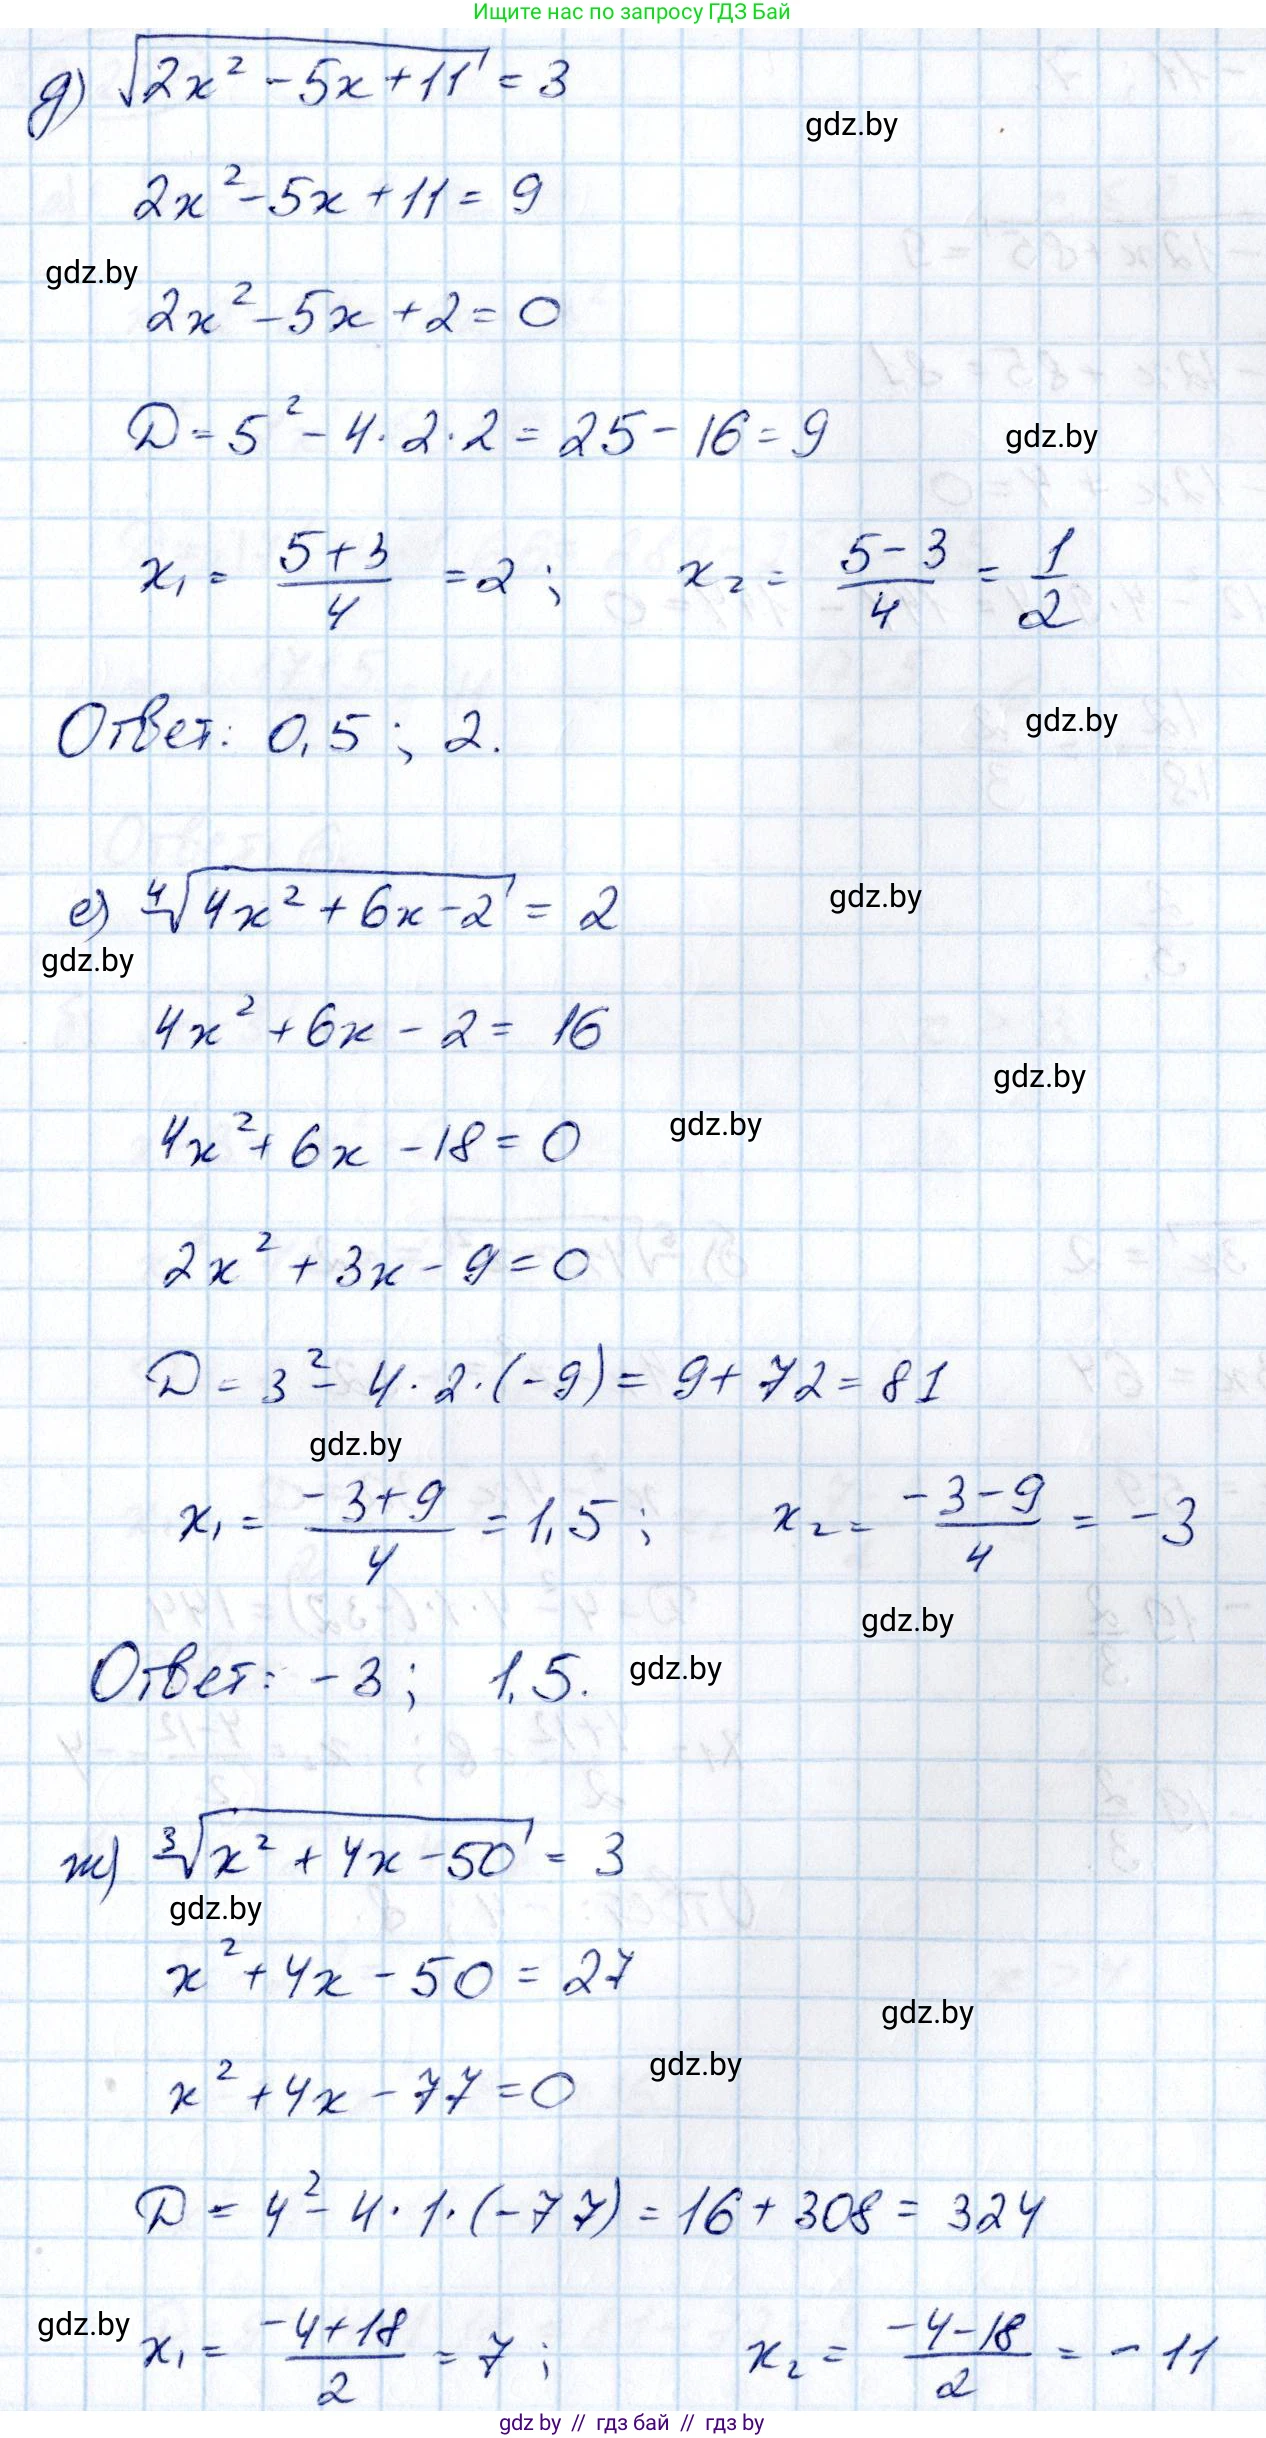 Ищите нас по запросу ГДЗ Бай
д) √(2x² - 5x + 11) = 3
gdz.by
2x² - 5x + 11 = 9
gdz.by
2x² - 5x + 2 = 0
D = 5² - 4 · 2 · 2 = 25 - 16 = 9
gdz.by
x₁ = (5+3)/4 = 2 ; x₂ = (5-3)/4 = 1/2
Ответ: 0,5 ; 2.
gdz.by
е) ⁴√(4x² + 6x - 2) = 2
gdz.by
gdz.by
4x² + 6x - 2 = 16
gdz.by
4x² + 6x - 18 = 0
gdz.by
2x² + 3x - 9 = 0
D = 3² - 4 · 2 · (-9) = 9 + 72 = 81
gdz.by
x₁ = (-3+9)/4 = 1,5 ; x₂ = (-3-9)/4 = -3
gdz.by
Ответ: -3 ; 1,5.
gdz.by
ж) ³√(x² + 4x - 50) = 3
gdz.by
x² + 4x - 50 = 27
gdz.by
gdz.by
x² + 4x - 77 = 0
D = 4² - 4 · 1 · (-77) = 16 + 308 = 324
gdz.by
x₁ = (-4+18)/2 = 7 ; x₂ = (-4-18)/2 = -11
gdz by // гдз бай // gdz by